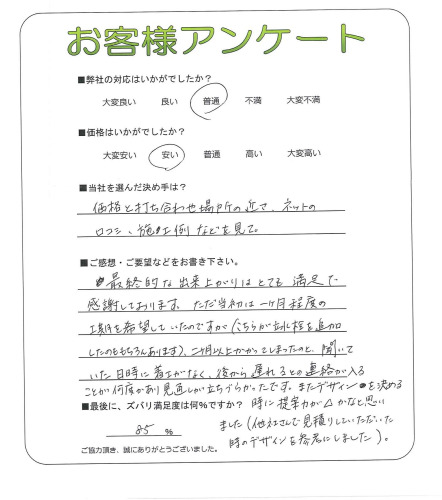 お客様アンケート
■弊社の対応はいかがでしたか？
大変良い 良い 普通 不満 大変不満
■価格はいかがでしたか？
大変安い 安い 普通 高い 大変高い
■当社を選んだ決め手は？
価格と打ち合わせ場所の近さ、ネットの
口コミ、施工例などを見て。
■ご感想・ご要望などをお書き下さい。
最終的な出来上がりはとても満足で
感謝しております。ただ当初は一ヶ月程度の
工期を希望していたのですが（こちらが立水栓を追加
したのももちろんあります）、二ヶ月以上かかってしまったのと、聞いて
いた日時に着工がなく、後から遅れるとの連絡が入る
ことが何度かあり見通しが立ちづらかったです。またデザインを決める
■最後に、ズバリ満足度は何％ですか？ 時に提案力が△かなと思い
85 ％ ました（他社さんで見積りしていただいた
ご協力頂き、誠にありがとうございました。 時のデザインを参考にしました）。